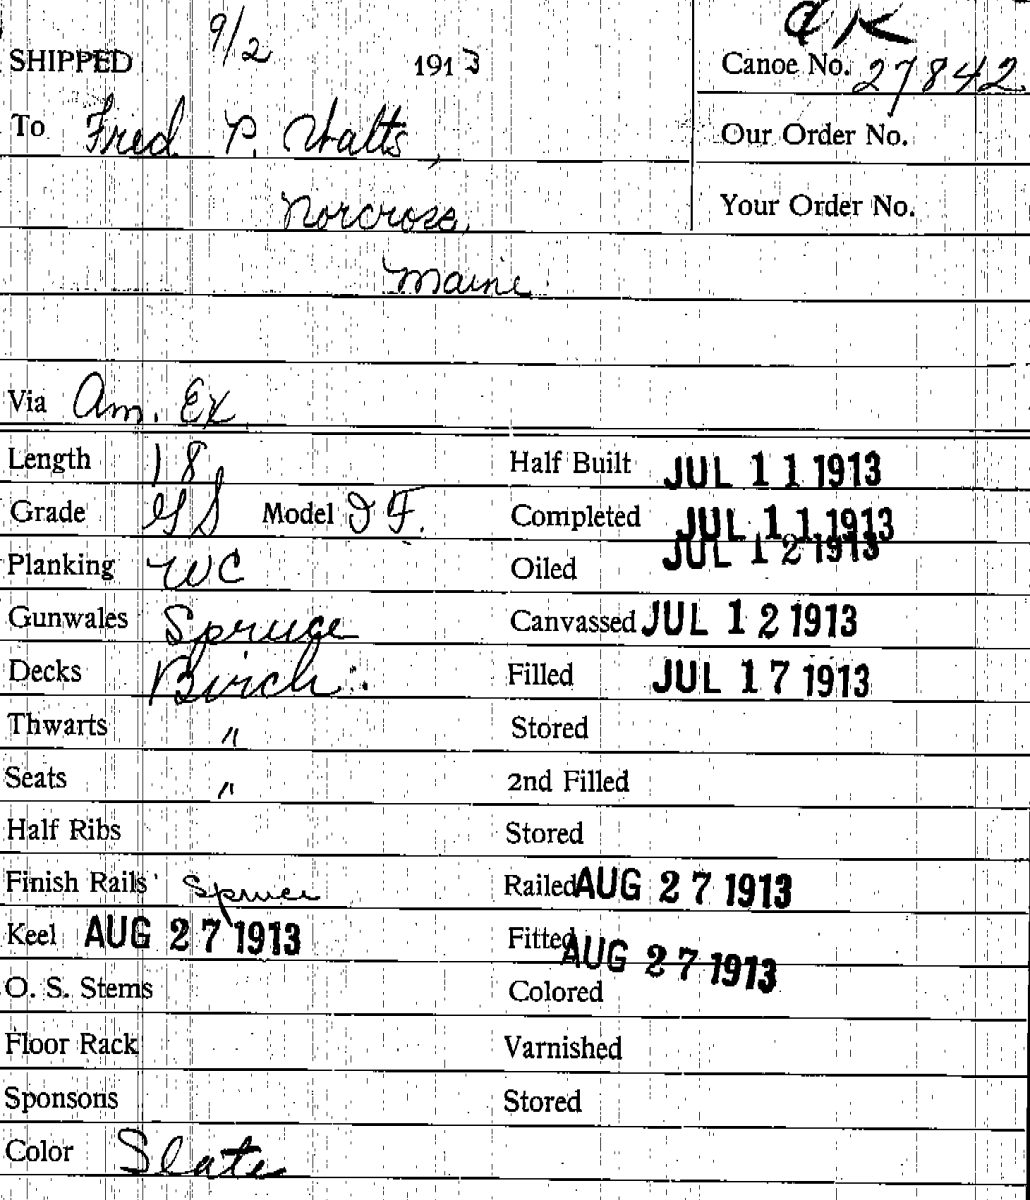 OK
SHIPPED 9/2 1913 Canoe No. 27842
To Fred P. Watts, Our Order No.
Norcross, Your Order No.
Maine
Via Am. Ex
Length 18 Half Built JUL 11 1913
Grade Model I F. Completed JUL 11 1913
Planking WC Oiled JUL 12 1913
Gunwales Spruce Canvassed JUL 12 1913
Decks Birch Filled JUL 17 1913
Thwarts " Stored
Seats " 2nd Filled
Half Ribs Stored
Finish Rails Spruce Railed AUG 27 1913
Keel AUG 27 1913 Fitted AUG 27 1913
O. S. Stems Colored
Floor Rack Varnished
Sponsons Stored
Color Slate